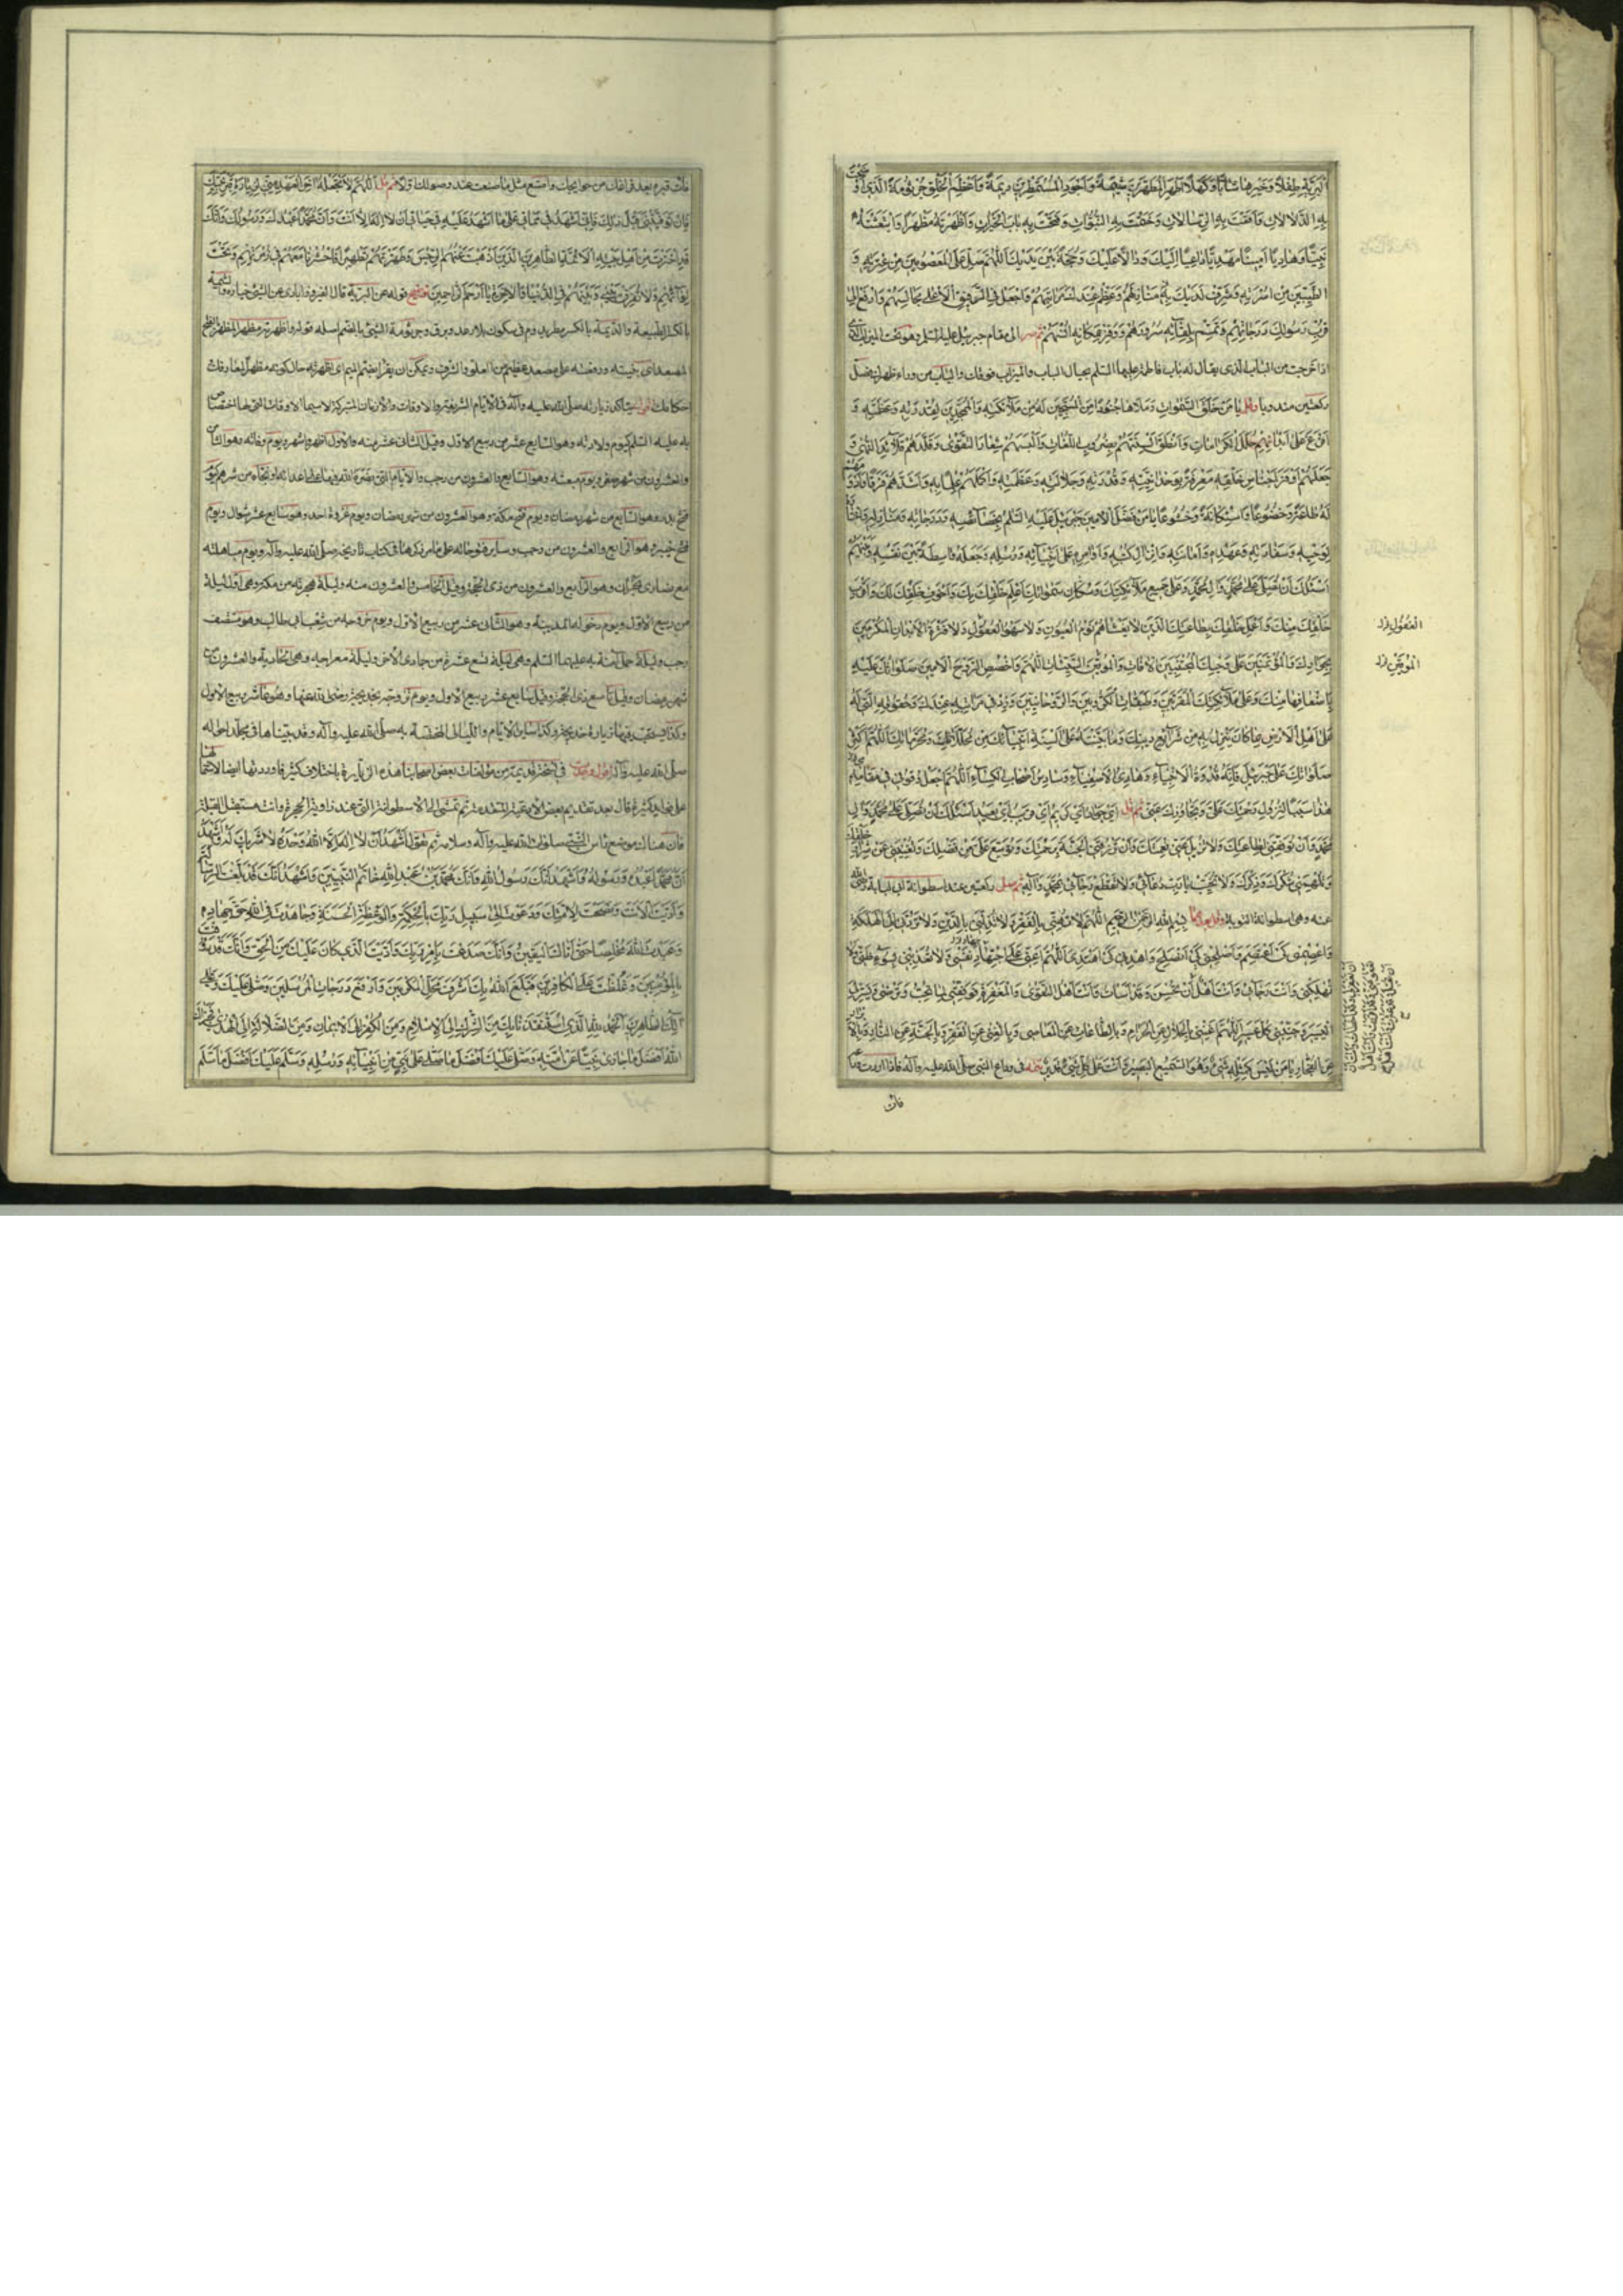 البرية طفلا وخيرها شابا وكهلا اطهر المطهرين شيمة واجود المستمطرين ديمة واعظم الخلق جرثومة الذي اوضحت
به الدلالات واقمت به الرسالات وختمت به النبوات وفتحت به باب الخيرات واظهرته مظهرا وابتعثته
نبيا وهاديا امينا مهديا داعيا اليك ودالا عليك وحجة بين يديك اللهم صل على المعصومين من عترته و
الطيبين من اسرته وشرف لديك به منازلهم وعظم عندك مراتبهم واجعل في الرفيق الاعلى مجالسهم وارفع الى
قرب رسولك درجاتهم وتمم بلقائه سرورهم ووفر بمكانه انسهم ثم صر الى مقام جبرئيل عليه السلم وهو تحت الميزاب الذي
اذا خرجت من الباب الذي يقال له باب فاطمة عليها السلم بحيال الباب والميزاب فوقك والباب من وراء ظهرك فصل
ركعتين مندوبا وقل يا من خلق السموات وملاها جنودا من المسبحين له من ملائكته والممجدين لقدرته وعظمته و
افرغ على ابدانهم حلل الكرامات وانطق السنتهم بضروب اللغات والبسهم شعار التقوى وقلدهم قلائد النهى و
جعلهم اوفر اجناس خلقه معرفة بوحدانيته وقدرته وجلالته وعظمته واكملهم علما به واشدهم فرقا وادومهم
له طاعة وخضوعا واستكانة وخشوعا يا من فضل الامين جبرئيل عليه السلم بخصائصه ودرجاته ومنازله واختاره
لوحيه وسفارته وعهده وامانته وانزال كتبه واوامره على انبيائه ورسله وجعله واسطة بين نفسه وبينهم
اسئلك ان تصلي على محمد وال محمد وعلى جميع ملائكتك وسكان سمواتك اعلم خلقك بك واخوف خلقك لك واقرب
خلقك منك واعمل خلقك بطاعتك الذين لا يغشاهم نوم العيون ولا سهو العقول ولا فترة الابدان المكرمين
بجوارك والمؤتمنين على وحيك المجتنبين الافات والموقين السيئات اللهم واخصص الروح الامين صلواتك عليه
باضعافها منك وعلى ملائكتك المقربين وطبقات الكروبيين والروحانيين وزد في مراتبه عندك وحقوقه التي له
على اهل الارض بما كان ينزل به من شرائع دينك وما بينته على السنة انبيائك من محللاتك ومحرماتك اللهم اكثر
صلواتك على جبرئيل فانه قدوة الانبياء وهادي الاصفياء وسادس اصحاب الكساء اللهم اجعل وقوفي في مقامه
هذا سببا لنزول رحمتك علي وتجاوزك عني ثم قل اي جواد اي كريم اي قريب اي بعيد اسئلك ان تصلي على محمد وال
محمد وان توفقني لطاعتك ولا تزيل عني نعمتك وان ترزقني الجنة برحمتك وتوسع علي من فضلك وتغنيني عن شرار خلقك
وتلهمني شكرك وذكرك ولا تخيب يا رب دعائي ولا تقطع رجائي بمحمد وآله ثم صل ركعتين عند اسطوانة ابي لبابة رضي الله
عنه وهي اسطوانة التوبة وقل بعدهما بسم الله الرحمن الرحيم اللهم لا تهني بالفقر ولا تذلني بالدين ولا تردني الى الهلكة
واعصمني كي اعتصم واصلحني كي انصلح واهدني كي اهتدي اللهم اعني على اجتهاد نفسي ولا تعذبني بسوء ظني ولا
تهلكني وانت رجائي وانت اهل ان تغفر لي وقد اسأت وانت اهل التقوى والمغفرة فوفقني لما تحب وترضى ويسر لي
اليسير وجنبني كل عسير اللهم اغنني بالحلال عن الحرام وبالطاعات عن المعاصي وبالغنى عن الفقر وبالجنة عن النار وبالابرار
عن الفجار يا من ليس كمثله شئ وهو السميع البصير وانت على كل شئ قدير تتمه في وداع النبي صلى الله عليه وآله فاذا اردت وداعه
فات
العقول زاد
الموقين زاد
فات قبره بعد فراغك من حوايجك واصنع مثل ما صنعت عند وصولك اولا ثم قل اللهم لا تجعله اخر العهد مني لزيارة قبر نبيك
فان توفيتني قبل ذلك فاني اشهد في مماتي على ما اشهد عليه في حياتي ان لا اله الا انت وان محمدا عبدك ورسولك وانك
قد اخترت من اهل بيته الائمة الطاهرين الذين اذهبت عنهم الرجس وطهرتهم تطهيرا فاحشرنا معهم في زمرتهم وتحت
لوائهم ولا تفرق بيني وبينهم في الدنيا والاخرة يا ارحم الراحمين توضيح قوله من البرية قال الفيروزابادي من الشئ خياره والشيمة
بالكسر الطبيعة والديمة بالكسر مطر يدوم في سكون بلا رعد وبرق وجرثومة الشئ بالضم اصله قوله واظهرته مظهرا المظهر بالفتح
المصعد اي جبته ورفعته على مصعد عظيم من العلو والشرف ويمكن ان يقرأ بضم الميم اي اظهرته حال كونه مظهرا لمعارفك
احكامك يتاكد زيارته صلى الله عليه وآله في الايام الشريفة والاوقات والازمان المتبركة لاسيما الاوقات التي لها اختصاص
به عليه السلم كيوم ولادته وهو السابع عشر من ربيع الاول وقيل الثاني عشر منه والاول اظهر واشهر ويوم وفاته وهو الثامن
والعشرون من شهر صفر ويوم مبعثه وهو السابع والعشرون من رجب والايام التي نصره الله فيها على اعدائه ونجاه من شرهم كيوم
فتح بدر وهو السابع من شهر رمضان ويوم فتح مكة وهو العشرون من شهر رمضان ويوم غزوة احد وهو سابع عشر شوال ويوم
فتح خيبر وهو الرابع والعشرون من رجب وساير فتوحاته على ما مر ذكرها في كتاب تاريخه صلى الله عليه وآله ويوم مباهلته
مع نصارى نجران وهو الرابع والعشرون من ذي الحجة وقيل الخامس والعشرون منه وليلة هجرته من مكة وهي اول ليلة
من ربيع الاول ويوم دخوله المدينة وهو الثاني عشر من ربيع الاول ويوم خروجه من شعب ابي طالب وهو منتصف
رجب وليلة حمل آمنة به عليهما السلم وهي ليلة تسع عشرة من جمادى الاخرى وليلة معراجه وهي الحادية والعشرون من
شهر رمضان وقيل تاسع ذي الحجة وقيل سابع عشر ربيع الاول ويوم تزوجه بخديجة رضي الله عنها وهو عاشر ربيع الاول
صلى الله عليه وآله في نسخة قديمة من مؤلفات بعض اصحابنا هذه الزيارة باختلاف كثير فاوردتها ايضا لاشتمالها
على فوايد كثيرة قال بعد تقديم بعض الادعية المتقدمة ثم تمشي الى الاسطوانة التي عند زاوية الحجرة وانت مستقبل القبلة
فان هناك موضع راس النبي صلوات الله عليه وآله وسلامه ثم تقول اشهد ان لا اله الا الله وحده لا شريك له واشهد
ان محمدا عبده ورسوله واشهد انك رسول الله وانك محمد بن عبد الله خاتم النبيين واشهد انك قد بلغت الرسالة
واديت الامانة ونصحت لامتك ودعوت الى سبيل ربك بالحكمة والموعظة الحسنة وجاهدت في الله حق جهاده
وعبدت الله مخلصا حتى اتاك اليقين وانك صدعت بامر ربك واديت الذي كان عليك من الحق وانك قد رؤفت
بالمؤمنين وغلظت على الكافرين فبلغ الله بك اشرف محل المكرمين وارفع درجات المرسلين وصلى عليك وعلى
آلك الطاهرين الحمد لله الذي استنقذنا بك من الشرك الى الاسلام ومن الكفر الى الايمان ومن الضلالة الى الهدى فجزاك
الله افضل ما جازى نبيا عن امته وصلى عليك افضل ما صلى على نبي من انبيائه ورسله وسلم عليك افضل ما سلم